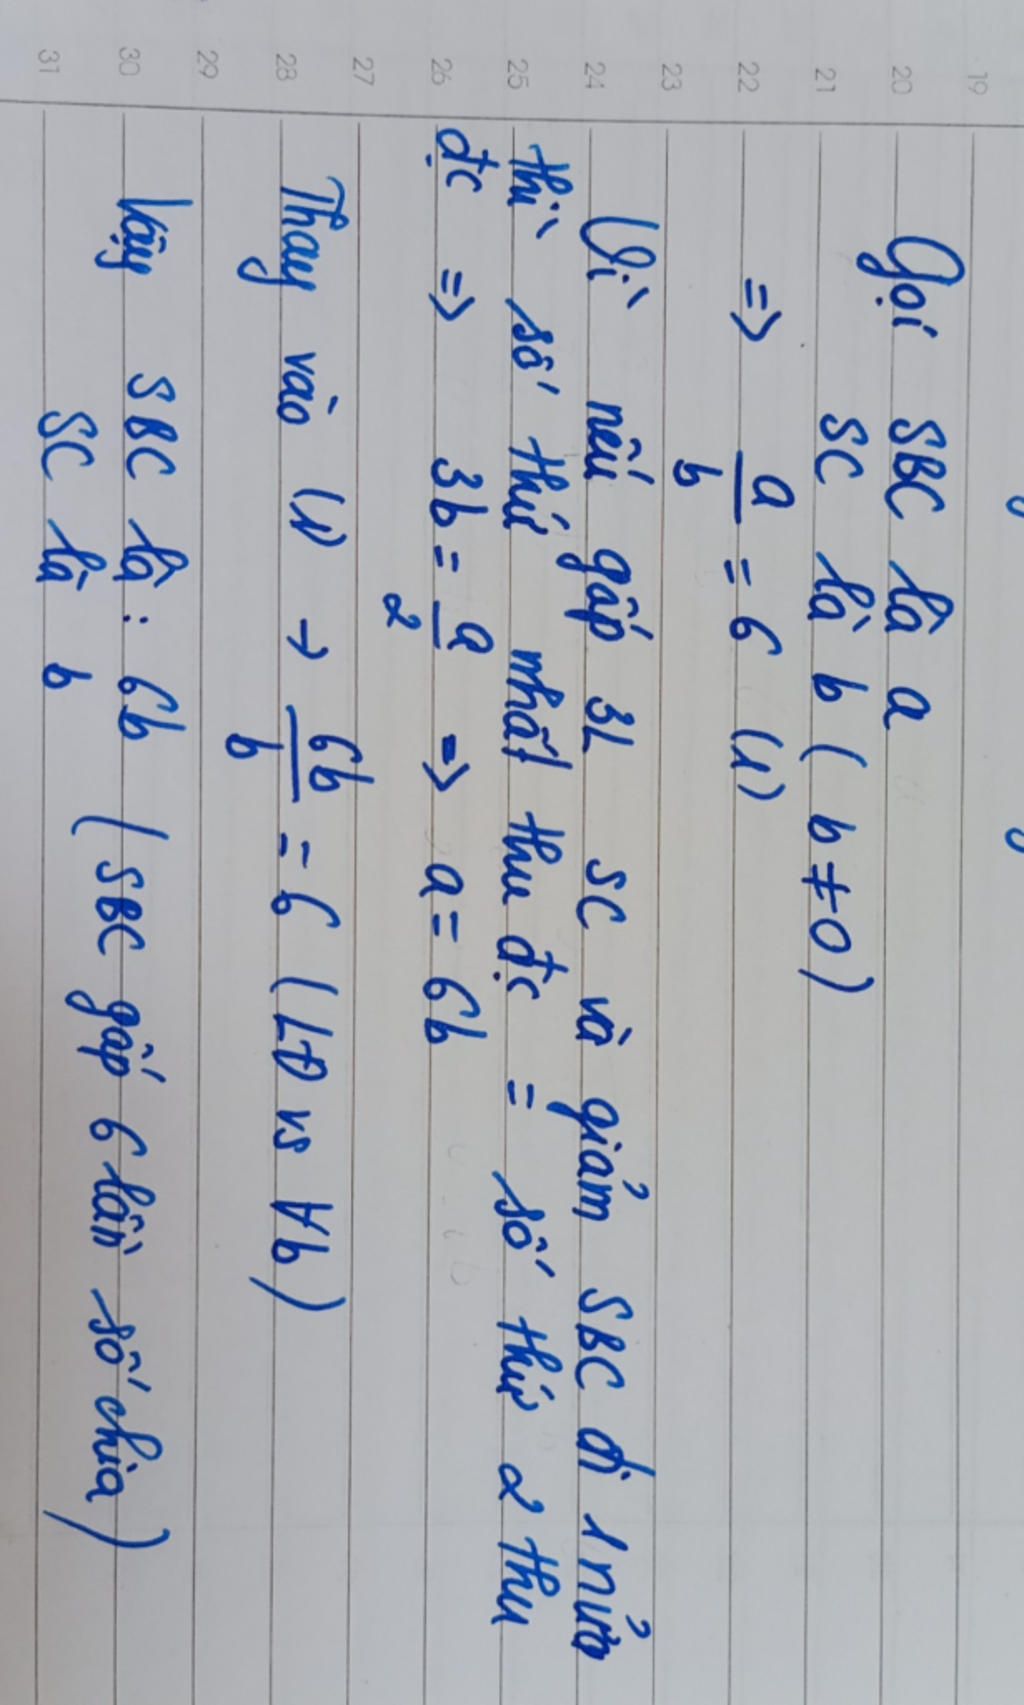 19
20
21
22
23
24
25
26
27
28
29
30
31
Gọi SBC là a
SC là b ( b ≠ 0 )
=> a/b = 6 (1)
Vì nếu gấp 3L SC và giảm SBC đi 1 nửa
thì số thứ nhất thu đc = số thứ 2 thu
đc => 3b = a/2 => a = 6b
Thay vào (1) → 6b/b = 6 ( LĐ vs ∀b )
Vậy SBC là : 6b ( SBC gấp 6 lần số chia )
SC là b